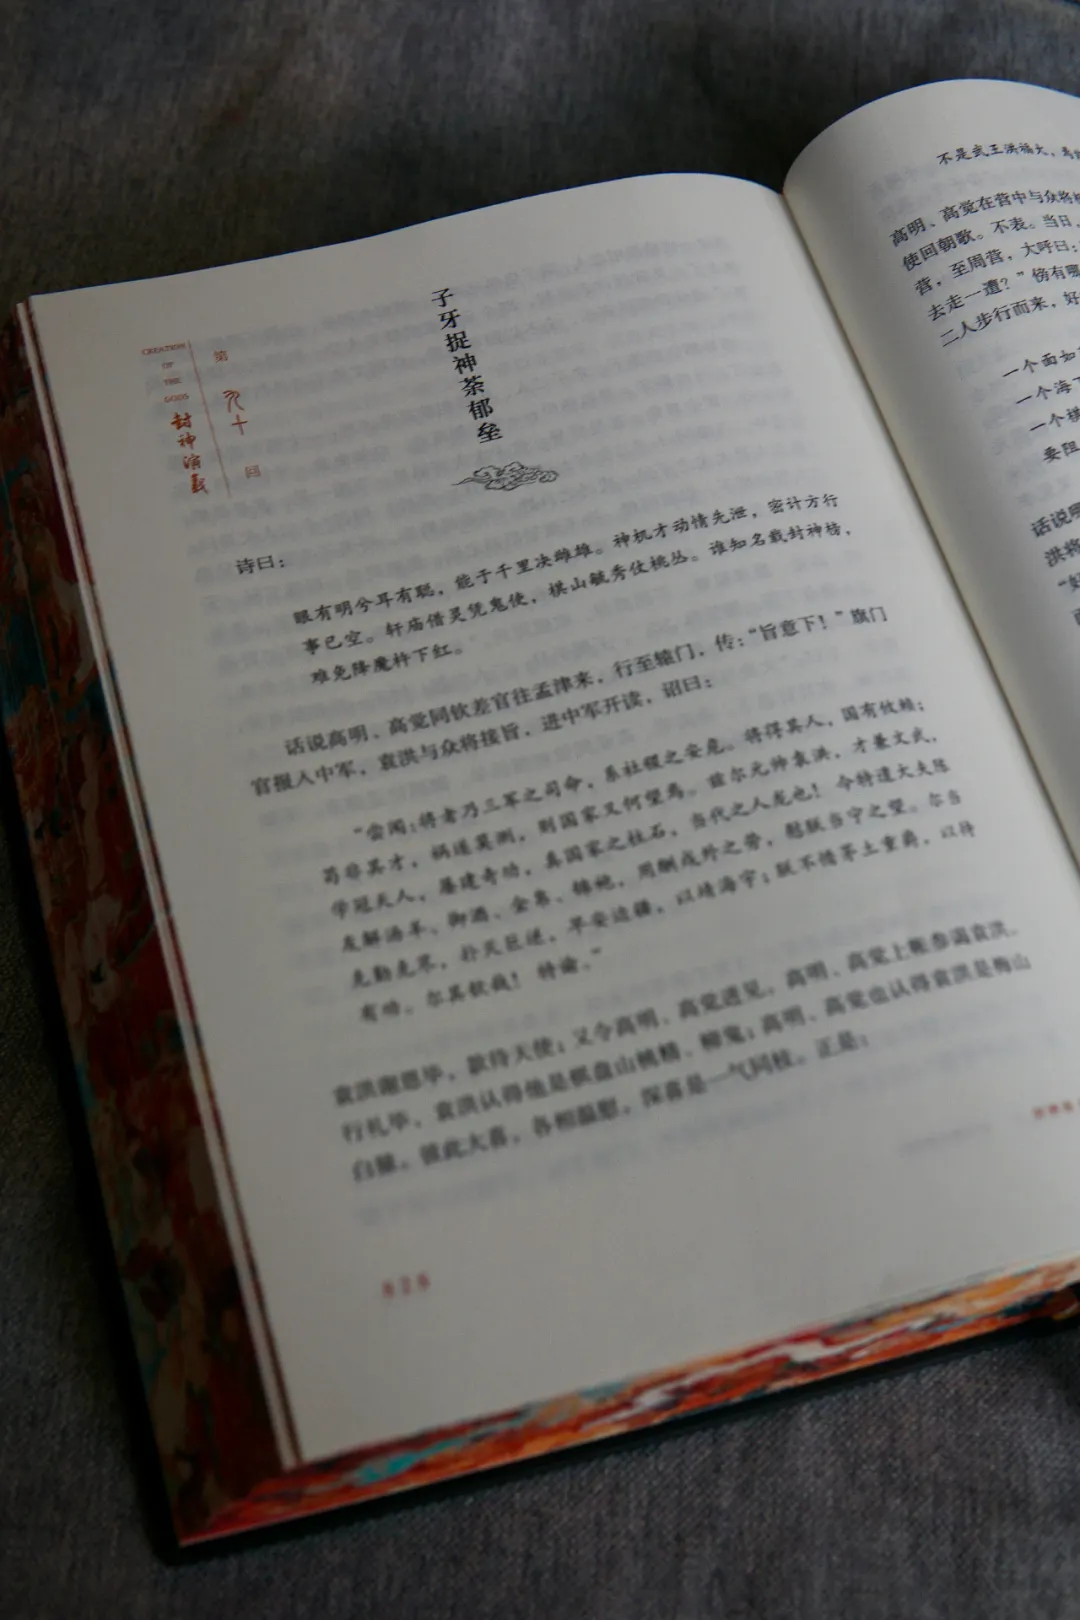 CREATION
OF
THE
GODS
封神演义
第九十回
子牙捉神荼郁垒
诗曰：
眼有明兮耳有聪，能于千里决雌雄。神机才动情先泄，密计方行
事已空。轩庙借灵凭鬼使，棋山毓秀仗桃丛。谁知名载封神榜，
难免降魔杵下红。
话说高明、高觉同钦差官往孟津来，行至辕门，传：“旨意下！”旗门
官报入中军，袁洪与众将接旨，进中军开读，诏曰：
“尝闻：将者乃三军之司命，系社稷之安危。将得其人，国有攸赖；
苟非其才，祸遂莫测，则国家又何望焉。兹尔元帅袁洪，才兼文武，
学冠天人，屡建奇功，真国家之柱石，当代之人龙也！今特遣大夫陈
友解汤羊、御酒、金帛、锦袍，用酬戍外之劳，慰朕当宁之望。尔当
克勤克尽，扑灭巨逆，早安边疆，以靖海宇；朕不惜茅土重爵，以待
有功。尔其钦哉！特谕。”
袁洪谢恩毕，款待天使；又令高明、高觉进见。高明、高觉上帐参谒袁洪。
行礼毕，袁洪认得他是棋盘山桃精、柳鬼；高明、高觉也认得袁洪是梅山
白猿。彼此大喜，各相温慰，深喜是一气同枝。正是：
828
不是武王洪福大，
高明、高觉在营中与众将
使回朝歌。不表。当日，
营，至周营，大呼曰：
去走一遭？”傍有哪
二人步行而来，好
一个面如
一个海下
一个棋
要阻
话说哪
洪将
“好